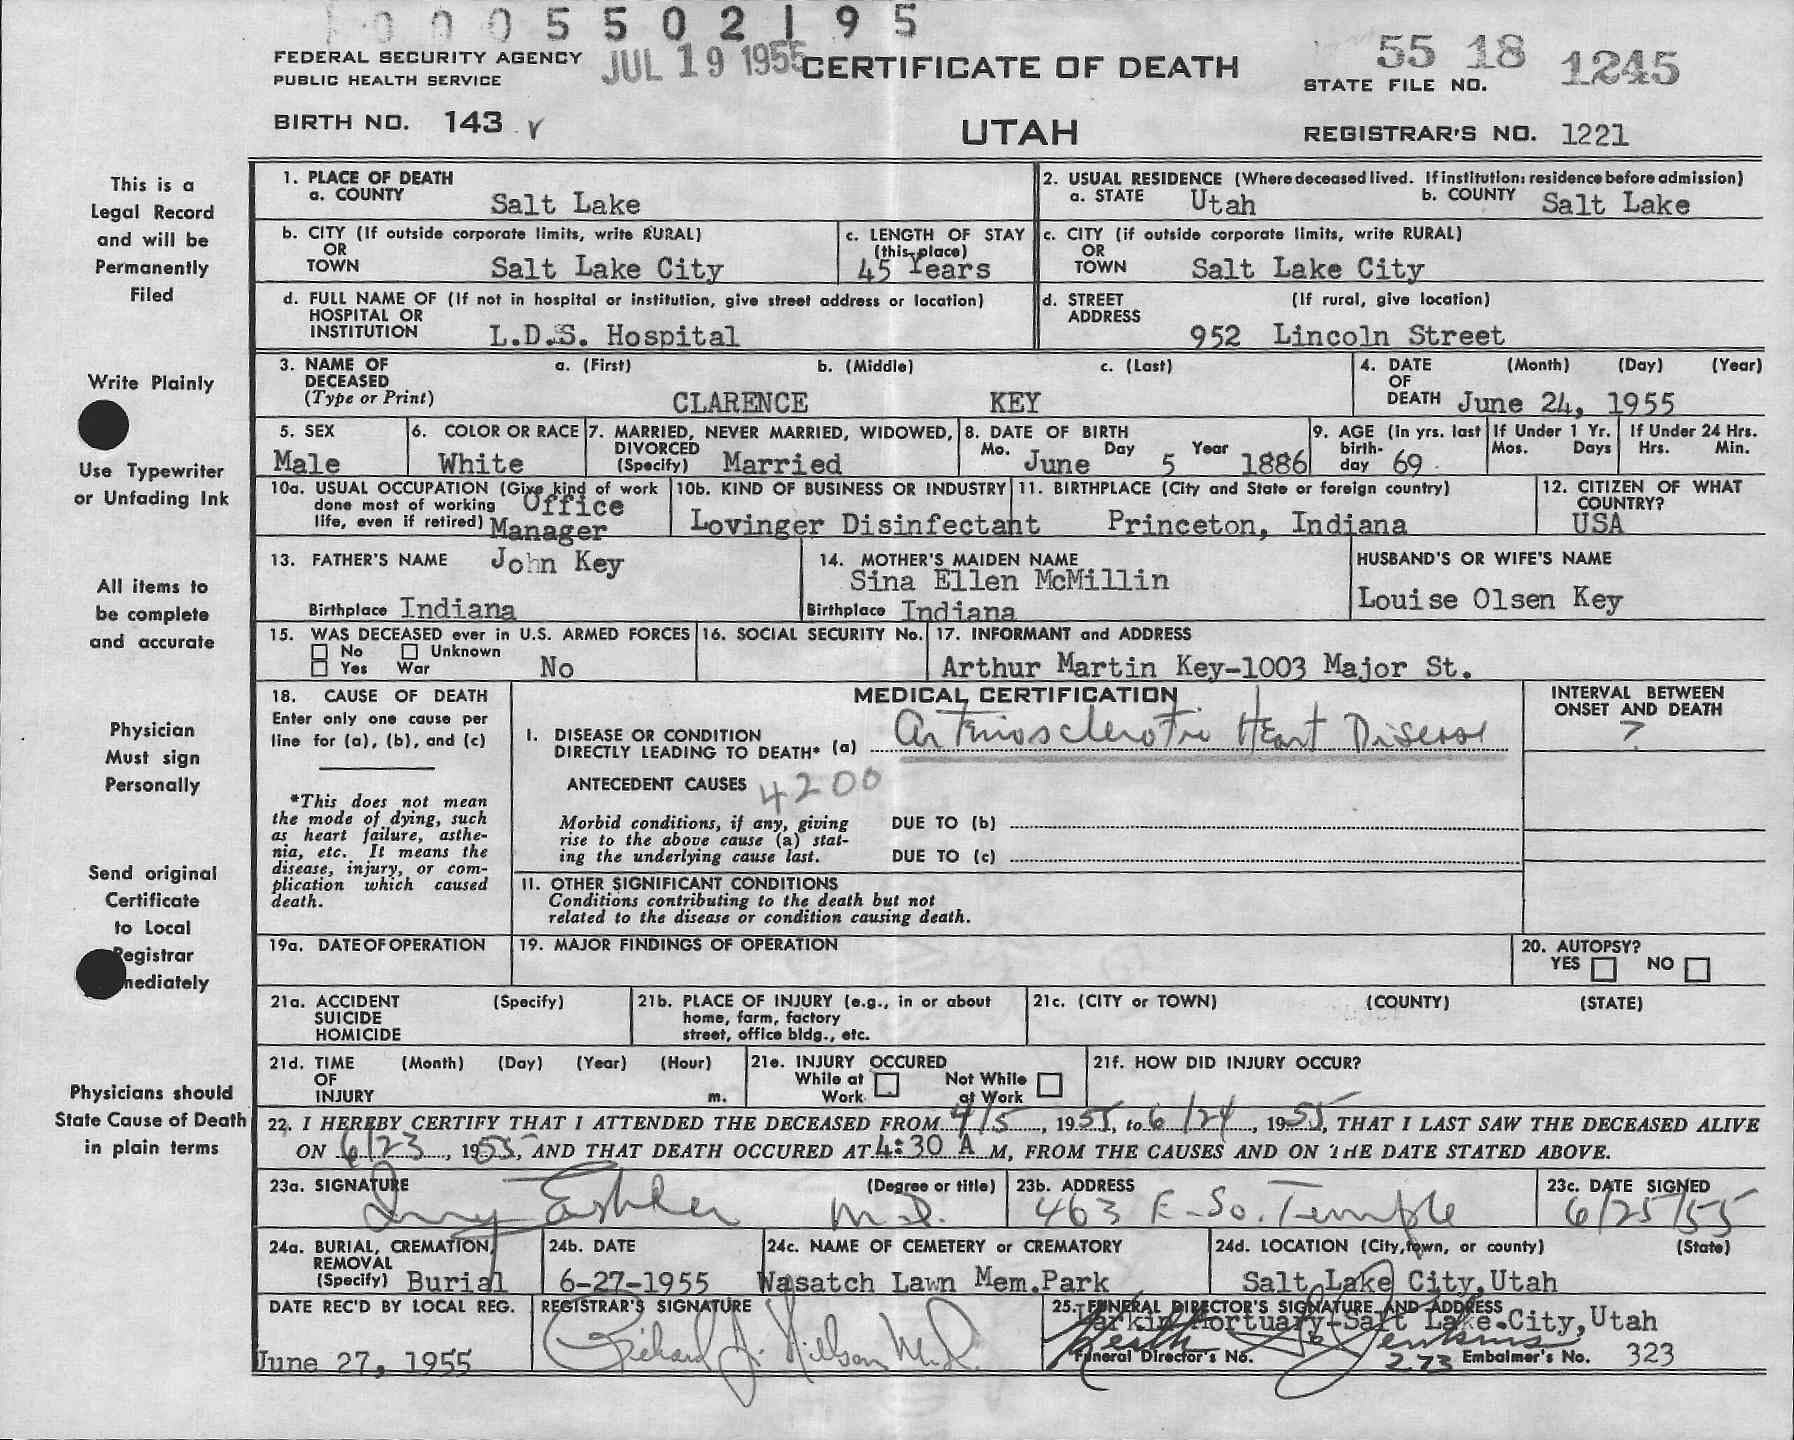 0005502195
FEDERAL SECURITY AGENCY
PUBLIC HEALTH SERVICE
JUL 19 1955
CERTIFICATE OF DEATH
55 18 1245
STATE FILE NO.
BIRTH NO. 143
UTAH
REGISTRAR'S NO. 1221
This is a
Legal Record
and will be
Permanently
Filed
Write Plainly
Use Typewriter
or Unfading Ink
All items to
be complete
and accurate
Physician
Must sign
Personally
Send original
Certificate
to Local
Registrar
mediately
Physicians should
State Cause of Death
in plain terms
1. PLACE OF DEATH
a. COUNTY Salt Lake
2. USUAL RESIDENCE (Where deceased lived. If institution: residence before admission)
a. STATE Utah b. COUNTY Salt Lake
b. CITY (If outside corporate limits, write RURAL)
OR
TOWN Salt Lake City
c. LENGTH OF STAY
(this place)
45 Years
c. CITY (if outside corporate limits, write RURAL)
OR
TOWN Salt Lake City
d. FULL NAME OF (If not in hospital or institution, give street address or location)
HOSPITAL OR
INSTITUTION L.D.S. Hospital
d. STREET (If rural, give location)
ADDRESS
952 Lincoln Street
3. NAME OF a. (First) b. (Middle) c. (Last)
DECEASED
(Type or Print) CLARENCE KEY
4. DATE (Month) (Day) (Year)
OF
DEATH June 24, 1955
5. SEX
Male
6. COLOR OR RACE
White
7. MARRIED, NEVER MARRIED, WIDOWED,
DIVORCED
(Specify) Married
8. DATE OF BIRTH
Mo. Day Year
June 5 1886
9. AGE (In yrs. last
birth-
day 69
If Under 1 Yr.
Mos. Days
If Under 24 Hrs.
Hrs. Min.
10a. USUAL OCCUPATION (Give kind of work
done most of working
life, even if retired) Office
Manager
10b. KIND OF BUSINESS OR INDUSTRY
Lovinger Disinfectant
11. BIRTHPLACE (City and State or foreign country)
Princeton, Indiana
12. CITIZEN OF WHAT
COUNTRY?
USA
13. FATHER'S NAME John Key
Birthplace Indiana
14. MOTHER'S MAIDEN NAME
Sina Ellen McMillin
Birthplace Indiana
HUSBAND'S OR WIFE'S NAME
Louise Olsen Key
15. WAS DECEASED ever in U.S. ARMED FORCES
No Unknown
Yes War No
16. SOCIAL SECURITY No.
17. INFORMANT and ADDRESS
Arthur Martin Key-1003 Major St.
18. CAUSE OF DEATH
Enter only one cause per
line for (a), (b), and (c)
*This does not mean
the mode of dying, such
as heart failure, asthe-
nia, etc. It means the
disease, injury, or com-
plication which caused
death.
MEDICAL CERTIFICATION
I. DISEASE OR CONDITION
DIRECTLY LEADING TO DEATH* (a) Arteriosclerotic Heart Disease
INTERVAL BETWEEN
ONSET AND DEATH
?
ANTECEDENT CAUSES 4200
Morbid conditions, if any, giving
rise to the above cause (a) stat-
ing the underlying cause last.
DUE TO (b)
DUE TO (c)
11. OTHER SIGNIFICANT CONDITIONS
Conditions contributing to the death but not
related to the disease or condition causing death.
19a. DATE OF OPERATION
19. MAJOR FINDINGS OF OPERATION
20. AUTOPSY?
YES NO
21a. ACCIDENT (Specify)
SUICIDE
HOMICIDE
21b. PLACE OF INJURY (e.g., in or about
home, farm, factory
street, office bldg., etc.
21c. (CITY or TOWN) (COUNTY) (STATE)
21d. TIME (Month) (Day) (Year) (Hour)
OF
INJURY m.
21e. INJURY OCCURED
While at Work
Not While at Work
21f. HOW DID INJURY OCCUR?
22. I HEREBY CERTIFY THAT I ATTENDED THE DECEASED FROM 4/5, 1955, to 6/24, 1955, THAT I LAST SAW THE DECEASED ALIVE
ON 6/23, 1955, AND THAT DEATH OCCURED AT 4:30 A M, FROM THE CAUSES AND ON THE DATE STATED ABOVE.
23a. SIGNATURE (Degree or title)
M.D.
23b. ADDRESS
463 E. So. Temple
23c. DATE SIGNED
6/25/55
24a. BURIAL, CREMATION,
REMOVAL
(Specify) Burial
24b. DATE
6-27-1955
24c. NAME OF CEMETERY or CREMATORY
Wasatch Lawn Mem.Park
24d. LOCATION (City, town, or county) (State)
Salt Lake City, Utah
DATE REC'D BY LOCAL REG.
June 27, 1955
REGISTRAR'S SIGNATURE
Richard J. Nilson M.D.
25. FUNERAL DIRECTOR'S SIGNATURE AND ADDRESS
Larkin Mortuary-Salt Lake City, Utah
Jenkins
Funeral Director's No. 273 Embalmer's No. 323